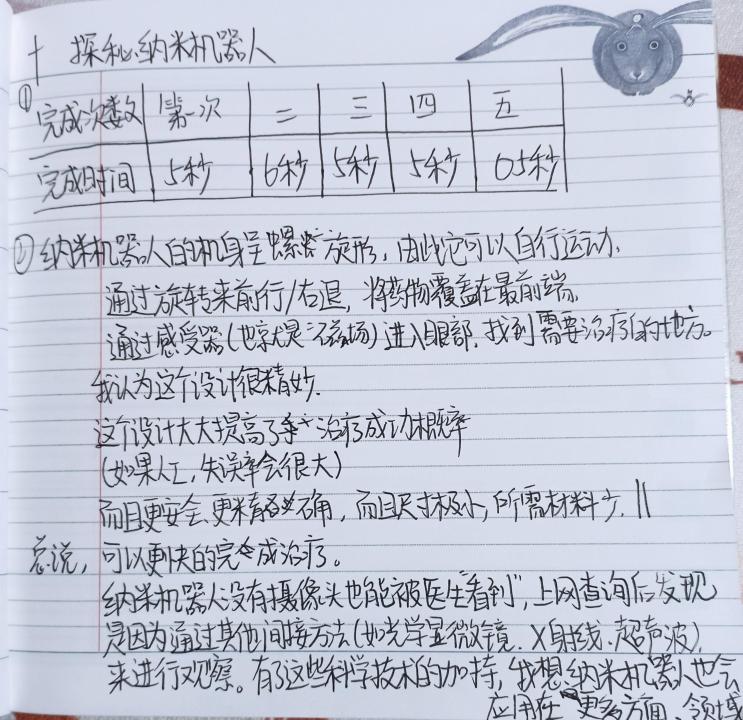 十 探秘纳米机器人
① 完成次数 第一次 二 三 四 五
完成时间 5秒 6秒 5秒 5秒 05秒
② 纳米机器人的机身呈螺旋形，由此它可以自行运动.
通过旋转来前行/右退，将药物覆盖在最前端.
通过感受器(也就是磁场)进入眼部.找到需要治疗的地方。
我认为这个设计很精妙.
这个设计大大提高了治疗成功概率
(如果人工，失误率会很大)
而且更安全、更精确，而且尺寸极小，所需材料少.
总说，可以更快的完成治疗。
纳米机器人没有摄像头也能被医生"看到"，上网查询后发现
是因为通过其他间接方法(如光学显微镜、X射线、超声波)，
来进行观察。有了这些科学技术的加持，我想纳米机器人也会
应用在更多方面、领域